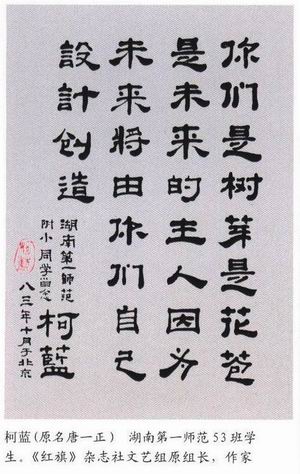 你们是树芽是花苞
是未来的主人因为
未来将由你们自己
設計创造
湖南第一师范
附小同学留念
柯藍
八三年十月于北京
柯蓝(原名唐一正) 湖南第一师范53班学
生。《红旗》杂志社文艺组原组长，作家